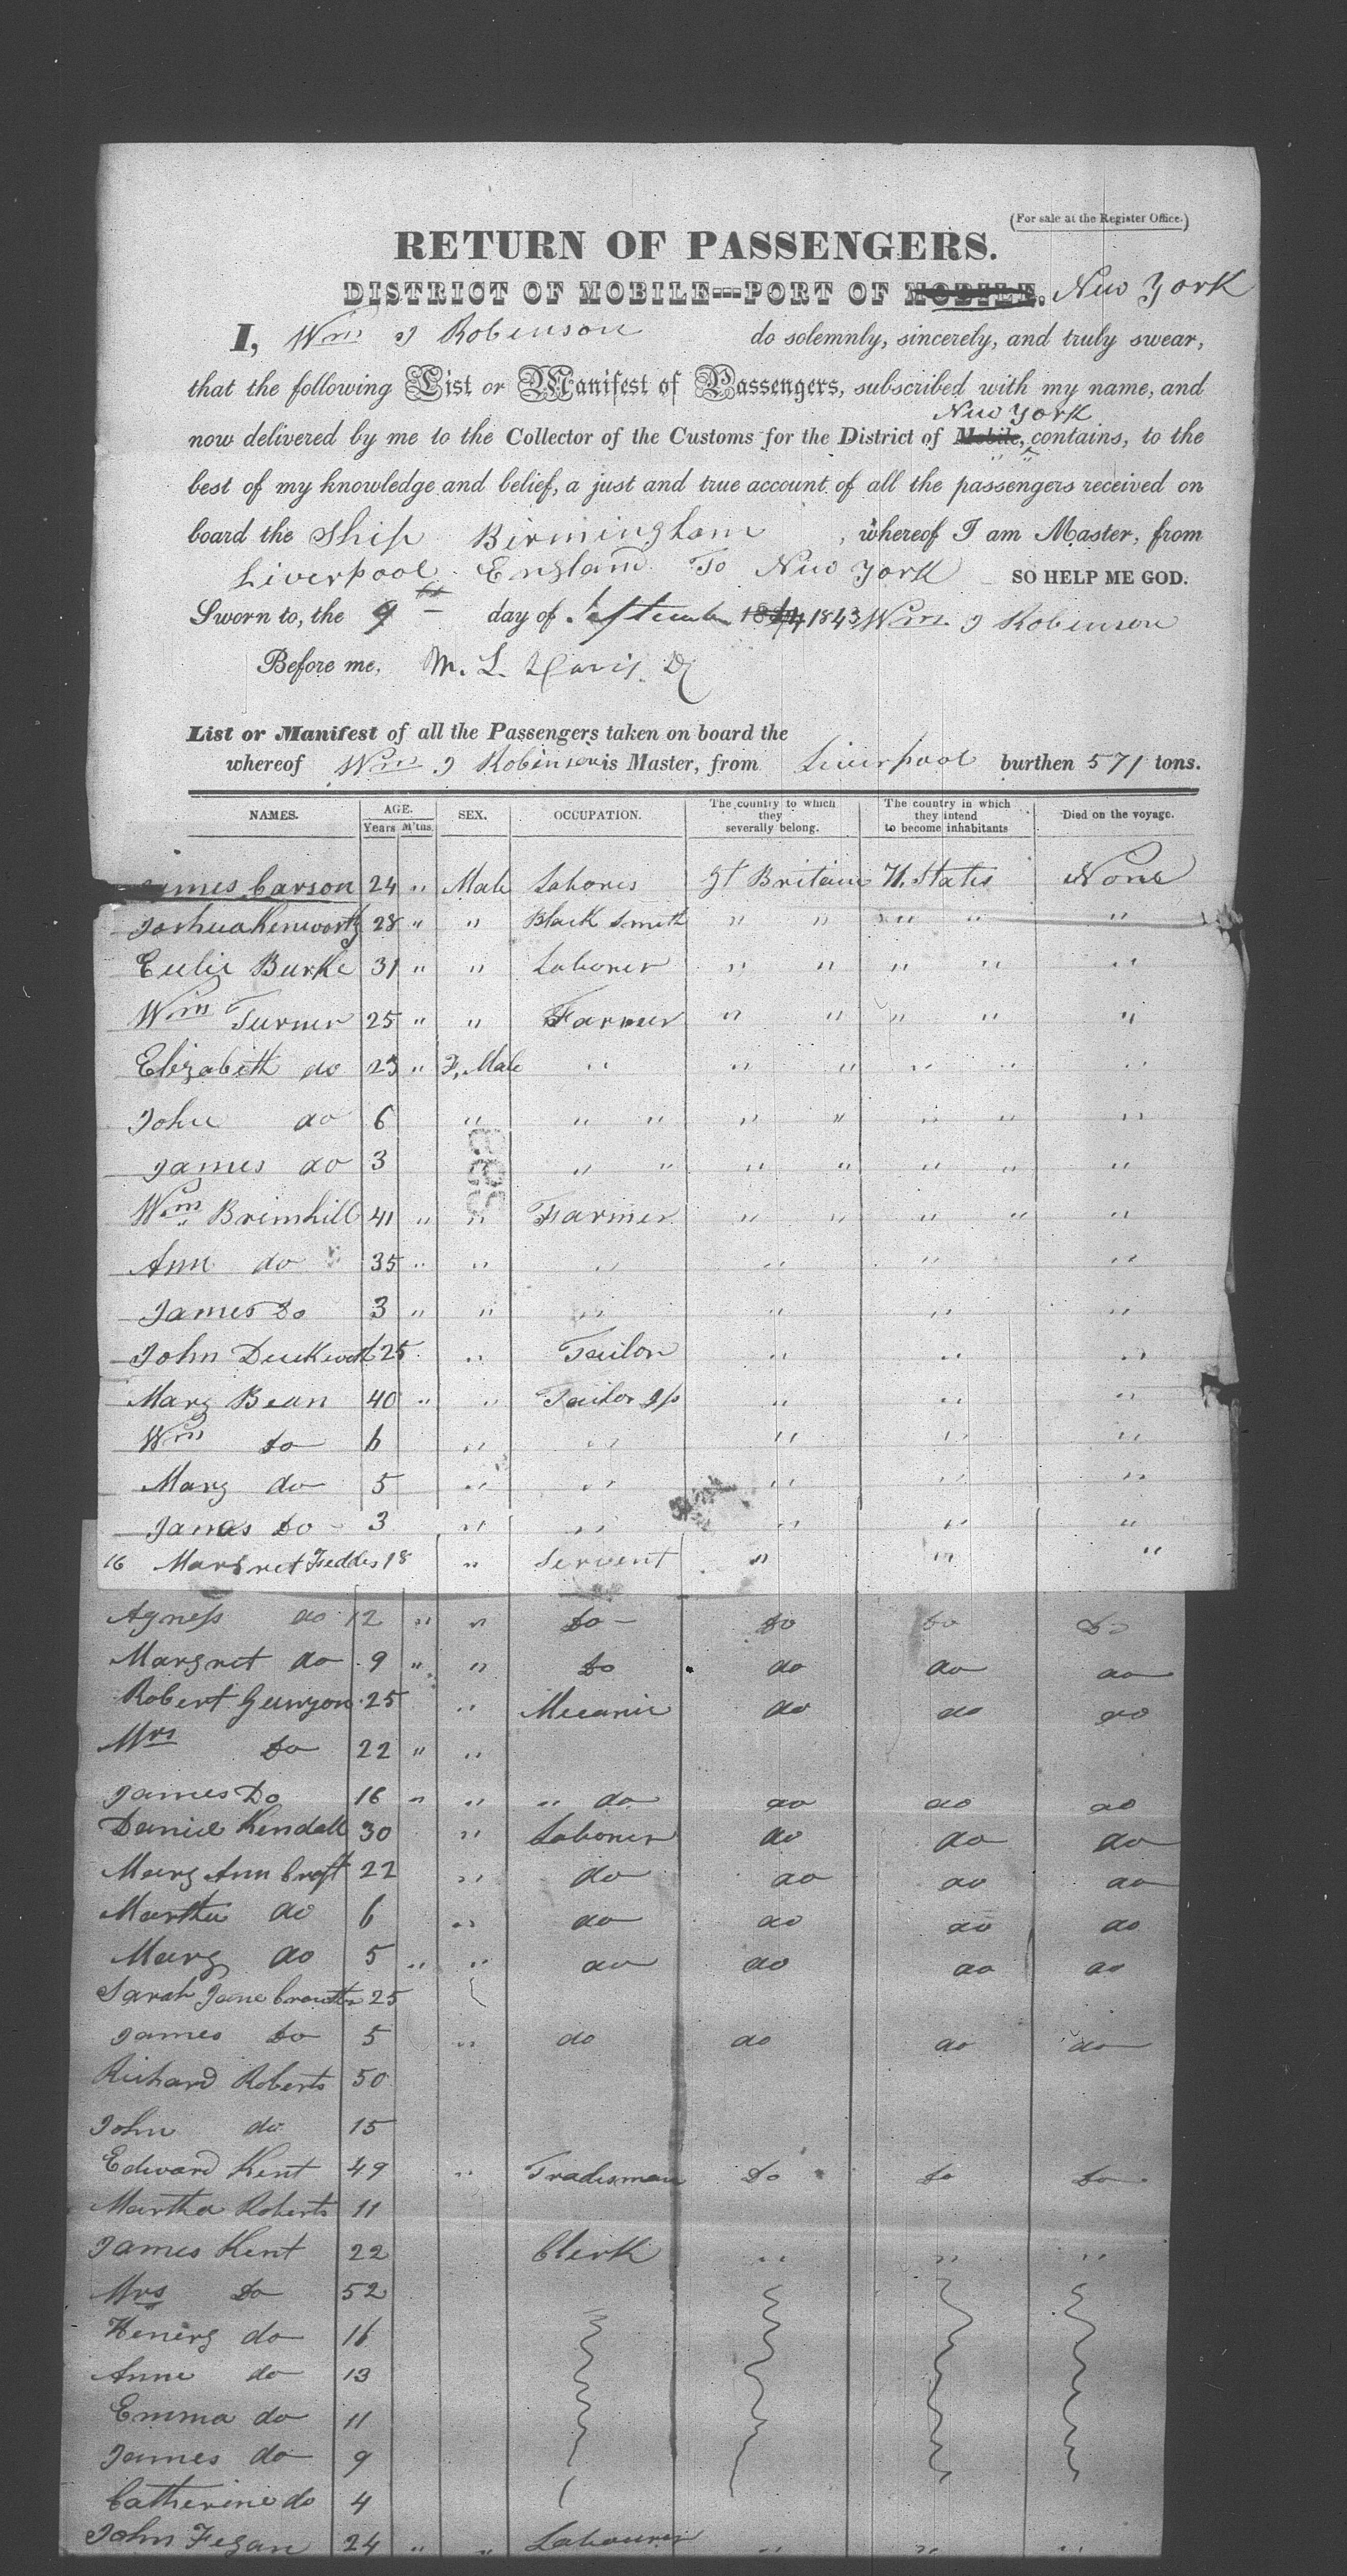 (For sale at the Register Office.)
RETURN OF PASSENGERS.
DISTRICT OF MOBILE---PORT OF MOBILE. New York
I, Wm J Robenson do solemnly, sincerely, and truly swear,
that the following List or Manifest of Passengers, subscribed with my name, and
New York
now delivered by me to the Collector of the Customs for the District of Mobile, contains, to the
best of my knowledge and belief, a just and true account of all the passengers received on
board the Ship Birmingham, whereof I am Master, from
Liverpool England To New York SO HELP ME GOD.
Sworn to, the 9th day of September 1844 1843 Wm J Robenson
Before me, M. L. Davis
List or Manifest of all the Passengers taken on board the
whereof Wm J Robinson is Master, from Liverpool burthen 571 tons.
NAMES. AGE. Years M'ths. SEX. OCCUPATION. The country to which they severally belong. The country in which they intend to become inhabitants Died on the voyage.
James Carson 24 " Male Labores Gt Britain U. States None
Joshua Kenworthy 28 " " Black Smith " " " " "
Burke 31 " " Laborer " " " " "
Wm Turner 25 " " Farmer " " " " "
Elizabeth do 23 " F. Male " " " " " "
John do 6 " " " " " " " "
James do 3 " " " " " " "
Wm Brimhill 41 " " Farmer " " " " "
Ann do 35 " " " " " "
James Do 3 " " " " " "
John Duckworth 25 " Tailor " " "
Mary Bean 40 " " Tailor " " "
Wm Do 6 " " " " "
Mary do 5 " " " " "
James Do 3 " " " " "
16 Margret Feddes 18 " Servent " " "
Agness do 12 " " Do Do Do Do
Margret do 9 " " Do do do do
Robert Gunyon 25 " Mecanic do do do
Mrs Do 22 " "
James Do 16 " " " do do do do
Daniel Kendall 30 " Laborer do do do
Mary Ann Croft 22 " do do do do
Martha do 6 " do do do do
Mary do 5 " " do do do do
Sarah Jane 25
James Do 5 " do do do do
Richard Roberts 50
John do 15
Edward Kent 49 " Tradesman Do Do Do
Martha Roberts 11
James Kent 22 Clerk " " "
Mrs Do 52
Henery do 16
Anne do 13
Emma do 11
James do 9
Catherine do 4
John Fegan 24 " " Labourer " " "